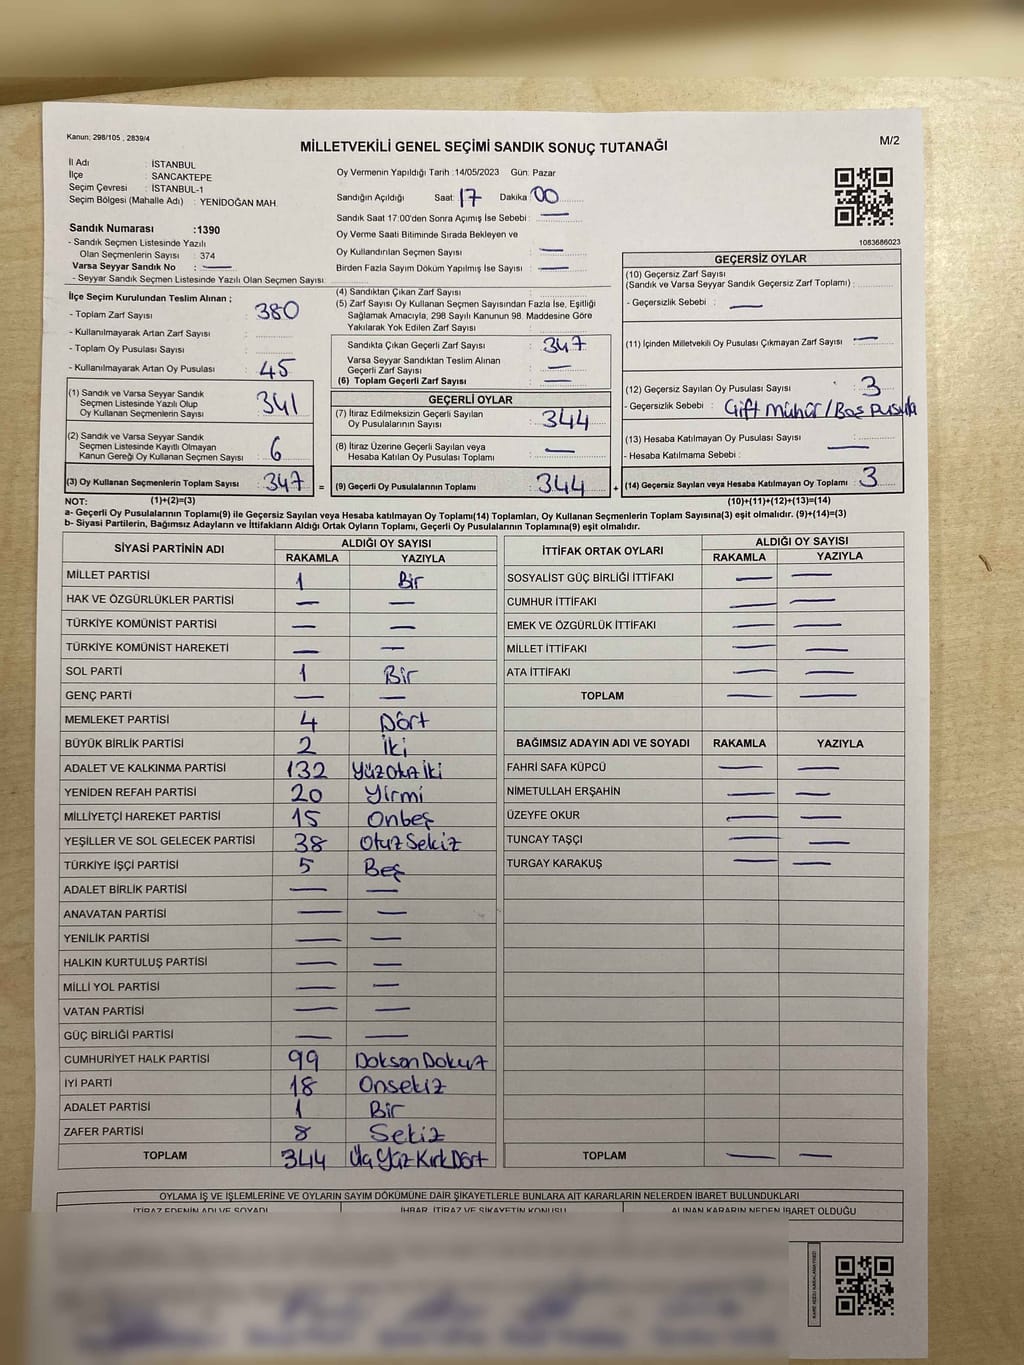 Kanun: 298/105 , 2839/4
MİLLETVEKİLİ GENEL SEÇİMİ SANDIK SONUÇ TUTANAĞI
M/2
İl Adı : İSTANBUL
İlçe : SANCAKTEPE
Seçim Çevresi : İSTANBUL-1
Seçim Bölgesi (Mahalle Adı) : YENİDOĞAN MAH.
Sandık Numarası :1390
- Sandık Seçmen Listesinde Yazılı
Olan Seçmenlerin Sayısı : 374
Varsa Seyyar Sandık No : —
- Seyyar Sandık Seçmen Listesinde Yazılı Olan Seçmen Sayısı:
Oy Vermenin Yapıldığı Tarih :14/05/2023 Gün: Pazar
Sandığın Açıldığı Saat: 17 Dakika: 00
Sandık Saat 17:00'den Sonra Açımış İse Sebebi : —
Oy Verme Saati Bitiminde Sırada Bekleyen ve
Oy Kullandırılan Seçmen Sayısı : —
Birden Fazla Sayım Döküm Yapılmış İse Sayısı : —
1083686023
İlçe Seçim Kurulundan Teslim Alınan ;
- Toplam Zarf Sayısı : 380
- Kullanılmayarak Artan Zarf Sayısı :
- Toplam Oy Pusulası Sayısı :
- Kullanılmayarak Artan Oy Pusulası : 45
(1) Sandık ve Varsa Seyyar Sandık
Seçmen Listesinde Yazılı Olup
Oy Kullanan Seçmenlerin Sayısı : 341
(2) Sandık ve Varsa Seyyar Sandık
Seçmen Listesinde Kayıtlı Olmayan
Kanun Gereği Oy Kullanan Seçmen Sayısı : 6
(3) Oy Kullanan Seçmenlerin Toplam Sayısı : 347 =
(4) Sandıktan Çıkan Zarf Sayısı :
(5) Zarf Sayısı Oy Kullanan Seçmen Sayısından Fazla İse, Eşitliği
Sağlamak Amacıyla, 298 Sayılı Kanunun 98. Maddesine Göre
Yakılarak Yok Edilen Zarf Sayısı :
Sandıkta Çıkan Geçerli Zarf Sayısı : 347
Varsa Seyyar Sandıktan Teslim Alınan
Geçerli Zarf Sayısı : —
(6) Toplam Geçerli Zarf Sayısı : —
GEÇERLİ OYLAR
(7) İtiraz Edilmeksizin Geçerli Sayılan
Oy Pusulalarının Sayısı : 344
(8) İtiraz Üzerine Geçerli Sayılan veya
Hesaba Katılan Oy Pusulası Toplamı : —
(9) Geçerli Oy Pusulalarının Toplamı : 344 +
GEÇERSİZ OYLAR
(10) Geçersiz Zarf Sayısı
(Sandık ve Varsa Seyyar Sandık Geçersiz Zarf Toplamı) :
- Geçersizlik Sebebi : —
(11) İçinden Milletvekili Oy Pusulası Çıkmayan Zarf Sayısı : —
(12) Geçersiz Sayılan Oy Pusulası Sayısı : 3
- Geçersizlik Sebebi : Çift mühür / Boş pusula
(13) Hesaba Katılmayan Oy Pusulası Sayısı :
- Hesaba Katılmama Sebebi : —
(14) Geçersiz Sayılan veya Hesaba Katılmayan Oy Toplamı : 3
NOT: (1)+(2)=(3) (10)+(11)+(12)+(13)=(14)
a- Geçerli Oy Pusulalarının Toplamı(9) ile Geçersiz Sayılan veya Hesaba katılmayan Oy Toplamı(14) Toplamları, Oy Kullanan Seçmenlerin Toplam Sayısına(3) eşit olmalıdır. (9)+(14)=(3)
b- Siyasi Partilerin, Bağımsız Adayların ve İttifakların Aldığı Ortak Oyların Toplamı, Geçerli Oy Pusulalarının Toplamına(9) eşit olmalıdır.
SİYASİ PARTİNİN ADI ALDIĞI OY SAYISI
RAKAMLA YAZIYLA
MİLLET PARTİSİ 1 Bir
HAK VE ÖZGÜRLÜKLER PARTİSİ — —
TÜRKİYE KOMÜNİST PARTİSİ — —
TÜRKİYE KOMÜNİST HAREKETİ — —
SOL PARTİ 1 Bir
GENÇ PARTİ — —
MEMLEKET PARTİSİ 4 Dört
BÜYÜK BİRLİK PARTİSİ 2 İki
ADALET VE KALKINMA PARTİSİ 132 Yüz Otuz İki
YENİDEN REFAH PARTİSİ 20 Yirmi
MİLLİYETÇİ HAREKET PARTİSİ 15 Onbeş
YEŞİLLER VE SOL GELECEK PARTİSİ 38 Otuz Sekiz
TÜRKİYE İŞÇİ PARTİSİ 5 Beş
ADALET BİRLİK PARTİSİ — —
ANAVATAN PARTİSİ — —
YENİLİK PARTİSİ — —
HALKIN KURTULUŞ PARTİSİ — —
MİLLİ YOL PARTİSİ — —
VATAN PARTİSİ — —
GÜÇ BİRLİĞİ PARTİSİ — —
CUMHURİYET HALK PARTİSİ 99 Doksan Dokuz
İYİ PARTİ 18 Onsekiz
ADALET PARTİSİ 1 Bir
ZAFER PARTİSİ 8 Sekiz
TOPLAM 344 Üç Yüz Kırk Dört
İTTİFAK ORTAK OYLARI ALDIĞI OY SAYISI
RAKAMLA YAZIYLA
SOSYALİST GÜÇ BİRLİĞİ İTTİFAKI — —
CUMHUR İTTİFAKI — —
EMEK VE ÖZGÜRLÜK İTTİFAKI — —
MİLLET İTTİFAKI — —
ATA İTTİFAKI — —
TOPLAM — —
BAĞIMSIZ ADAYIN ADI VE SOYADI RAKAMLA YAZIYLA
FAHRİ SAFA KÜPCÜ — —
NİMETULLAH ERŞAHİN — —
ÜZEYFE OKUR — —
TUNCAY TAŞÇI — —
TURGAY KARAKUŞ — —
TOPLAM — —
OYLAMA İŞ VE İŞLEMLERİNE VE OYLARIN SAYIM DÖKÜMÜNE DAİR ŞİKAYETLERLE BUNLARA AİT KARARLARIN NELERDEN İBARET BULUNDUKLARI
İTİRAZ EDENİN ADI VE SOYADI İHBAR, İTİRAZ VE ŞİKAYETİN KONUSU ALINAN KARARIN NEDEN İBARET OLDUĞU